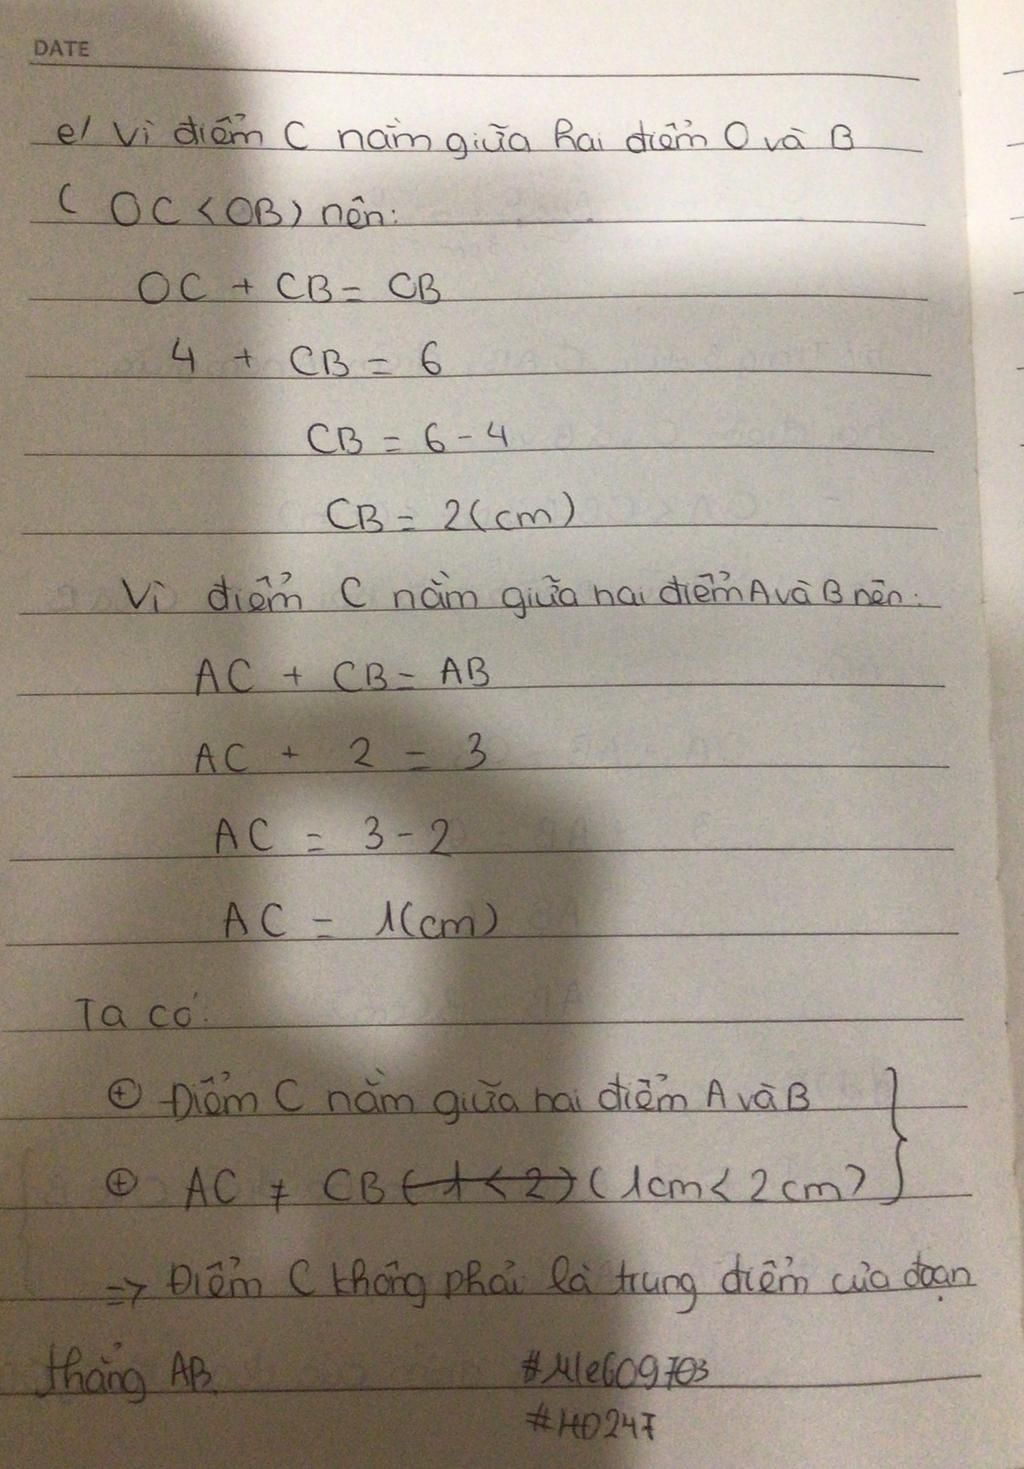 DATE
e/ Vì điểm C nằm giữa hai điểm O và B
( OC < OB) nên:
OC + CB = CB
4 + CB = 6
CB = 6 - 4
CB = 2 (cm)
Vì điểm C nằm giữa hai điểm A và B nên:
AC + CB = AB
AC + 2 = 3
AC = 3 - 2
AC = 1(cm)
Ta có:
⊕ Điểm C nằm giữa hai điểm A và B
⊕ AC ≠ CB (1 < 2) (1cm < 2cm)
=> Điểm C không phải là trung điểm của đoạn
thẳng AB
#HĐ247